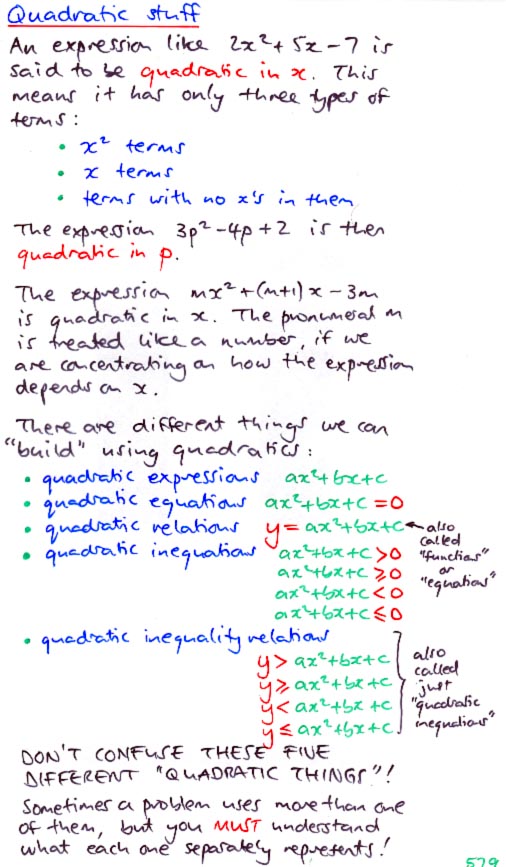 Quadratic stuff
An expression like 2x² + 5x - 7 is
said to be quadratic in x. This
means it has only three types of
terms:
• x² terms
• x terms
• terms with no x's in them
The expression 3p² - 4p + 2 is then
quadratic in p.
The expression mx² + (m+1)x - 3m
is quadratic in x. The pronumeral m
is treated like a number, if we
are concentrating on how the expression
depends on x.
There are different things we can
"build" using quadratics:
• quadratic expressions ax²+bx+c
• quadratic equations ax²+bx+c = 0
• quadratic relations y = ax²+bx+c ← also called "functions" or "equations"
• quadratic inequations ax²+bx+c > 0
ax²+bx+c ⩾ 0
ax²+bx+c < 0
ax²+bx+c ⩽ 0
• quadratic inequality relations
y > ax²+bx+c
y ⩾ ax²+bx+c
y < ax²+bx+c
y ⩽ ax²+bx+c
also
called
just
"quadratic
inequations"
DON'T CONFUSE THESE FIVE
DIFFERENT "QUADRATIC THINGS"!
Sometimes a problem uses more than one
of them, but you MUST understand
what each one separately represents!
579